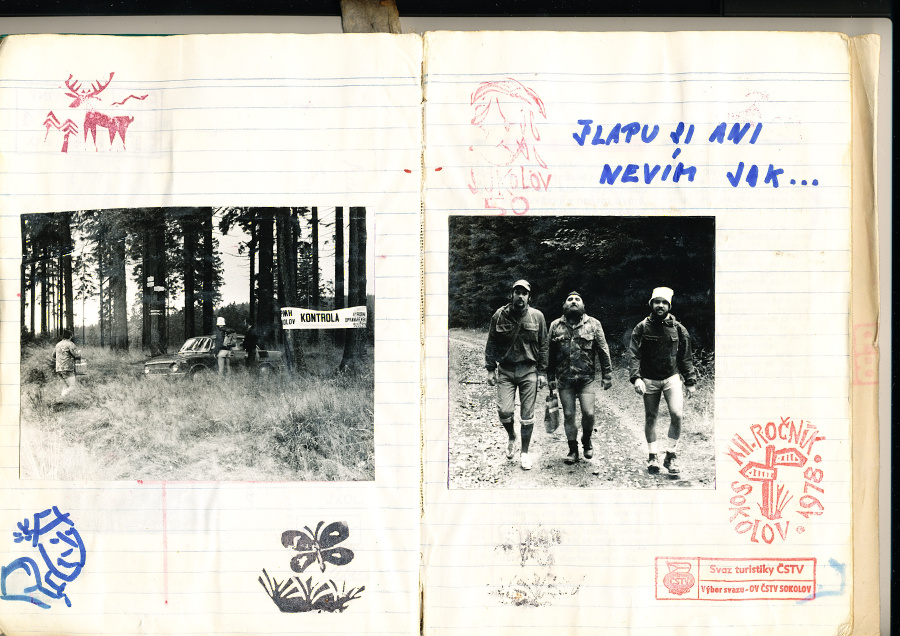 KONTROLA
SOKOLOV
50
JLAPU SI ANI
NEVÍM JAK...
XII. ROČNÍK
SOKOLOV
1978
Svaz turistiky ČSTV
Výbor svazu - OV ČSTV SOKOLOV